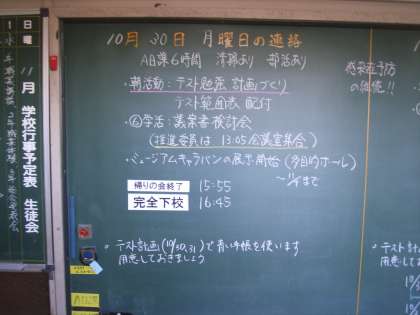 10月 30日 月曜日の連絡
A日課6時間 清掃あり 部活あり
・朝活動：テスト勉強 計画づくり
テスト範囲表 配付
・⑥学活：議案書検討会
(推進委員は 13:05 会議室集合)
・ミュージアムキャラバンの展示開始 (多目的ホール)
〜11/1まで
帰りの会終了 15:55
完全下校 16:45
・テスト計画(10/30,31)で青い手帳を使います
用意しておきましょう
感染症予防
の継続!!
11月 学校行事予定表 生徒会
日曜
1水
・テスト
用意して